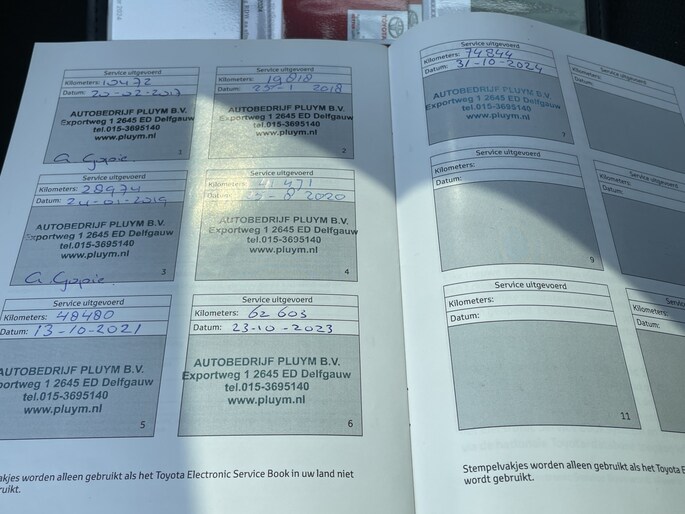 Service uitgevoerd
Kilometers: 10472
Datum: 20-02-2017
AUTOBEDRIJF PLUYM B.V.
Exportweg 1 2645 ED Delfgauw
tel.015-3695140
www.pluym.nl
1
Service uitgevoerd
Kilometers: 19818
Datum: 25-1 2018
AUTOBEDRIJF PLUYM B.V.
Exportweg 1 2645 ED Delfgauw
tel.015-3695140
www.pluym.nl
2
Service uitgevoerd
Kilometers: 28974
Datum: 24-01-2019
AUTOBEDRIJF PLUYM B.V.
Exportweg 1 2645 ED Delfgauw
tel.015-3695140
www.pluym.nl
3
Service uitgevoerd
Kilometers: 41471
Datum: 25-8 2020
AUTOBEDRIJF PLUYM B.V.
Exportweg 1 2645 ED Delfgauw
tel.015-3695140
www.pluym.nl
4
Service uitgevoerd
Kilometers: 48480
Datum: 13-10-2021
AUTOBEDRIJF PLUYM B.V.
portweg 1 2645 ED Delfgauw
tel.015-3695140
www.pluym.nl
5
Service uitgevoerd
Kilometers: 62603
Datum: 23-10-2023
AUTOBEDRIJF PLUYM B.V.
Exportweg 1 2645 ED Delfgauw
tel.015-3695140
www.pluym.nl
6
akjes worden alleen gebruikt als het Toyota Electronic Service Book in uw land niet
ruikt.
Service uitgevoerd
Kilometers: 74844
Datum: 31-10-2024
AUTOBEDRIJF PLUYM B.V.
Exportweg 1 2645 ED Delfgauw
tel.015-3695140
www.pluym.nl
7
Service uitgevoerd
Kilometers:
Datum:
Service uitgevoerd
Kilometers:
Datum:
9
Service uitgevoerd
Kilometers:
Datum:
Service uitgevoerd
Kilometers:
Datum:
11
Service
Kilometers:
Datum:
Stempelvakjes worden alleen gebruikt als het Toyota E
wordt gebruikt.
TOYOTA